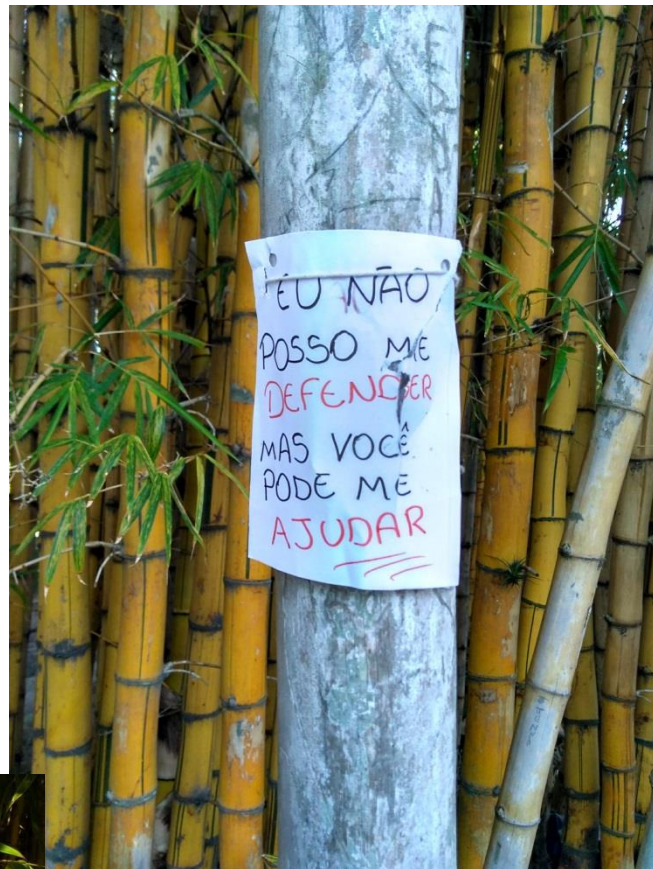 EU NÃO
POSSO ME
DEFENDER
MAS VOCÊ
PODE ME
AJUDAR